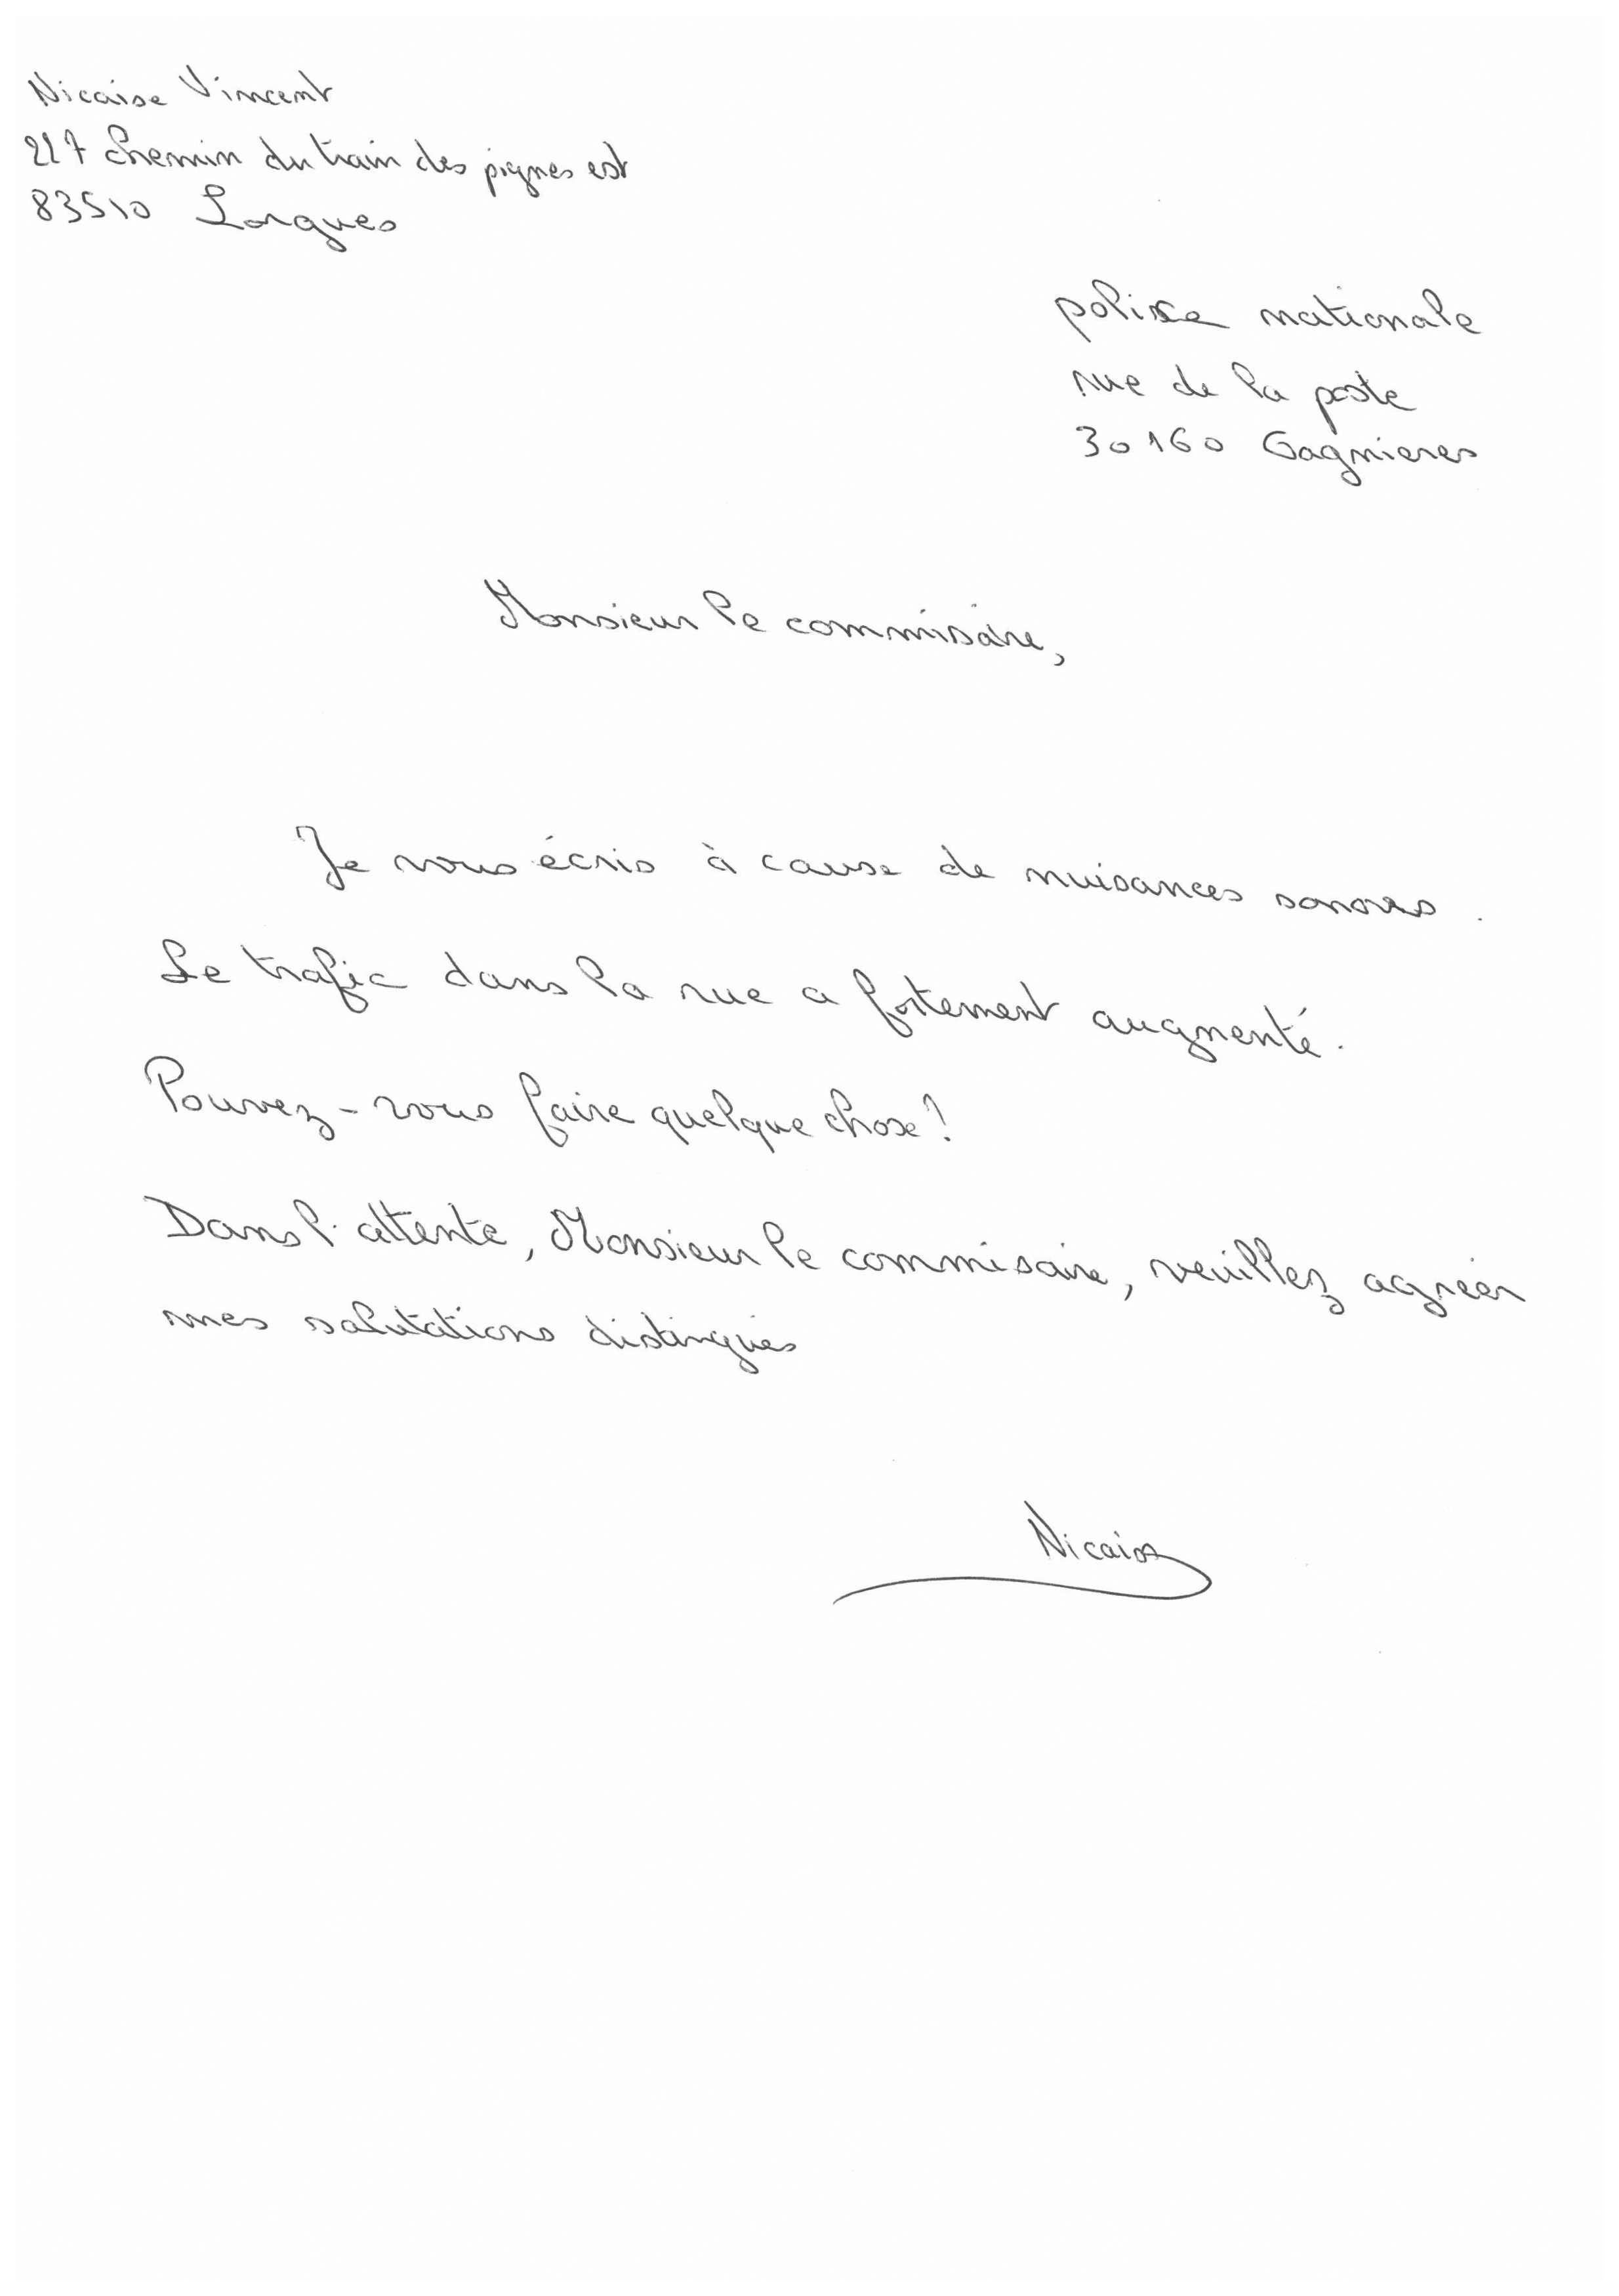 Nicaise Vincent
217 chemin du train des pignes est
83510 Lorgues
police nationale
rue de la poste
30160 Gagnieres
Monsieur le commissaire,
Je vous écris à cause de nuisances sonores.
Le trafic dans la rue a fortement augmenté.
Pouvez-vous faire quelque chose?
Dans l'attente, Monsieur le commisaire, veuillez agréer
mes salutations distingués
Nicaise